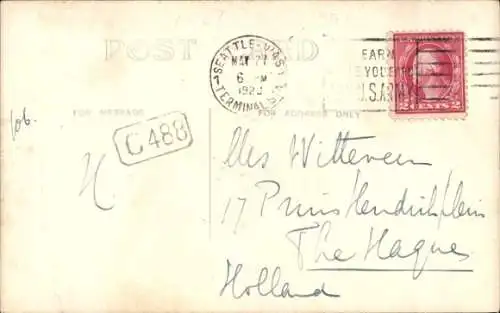 POST CARD
SEATTLE, WASH.
MAY 27
6 PM
1920
TERMINAL STA.
EARN
U.S. ARMY
2 CENTS 2
FOR MESSAGE
FOR ADDRESS ONLY
C 488
Witteveen
17 Prins Hendrikplein
The Hague
Holland